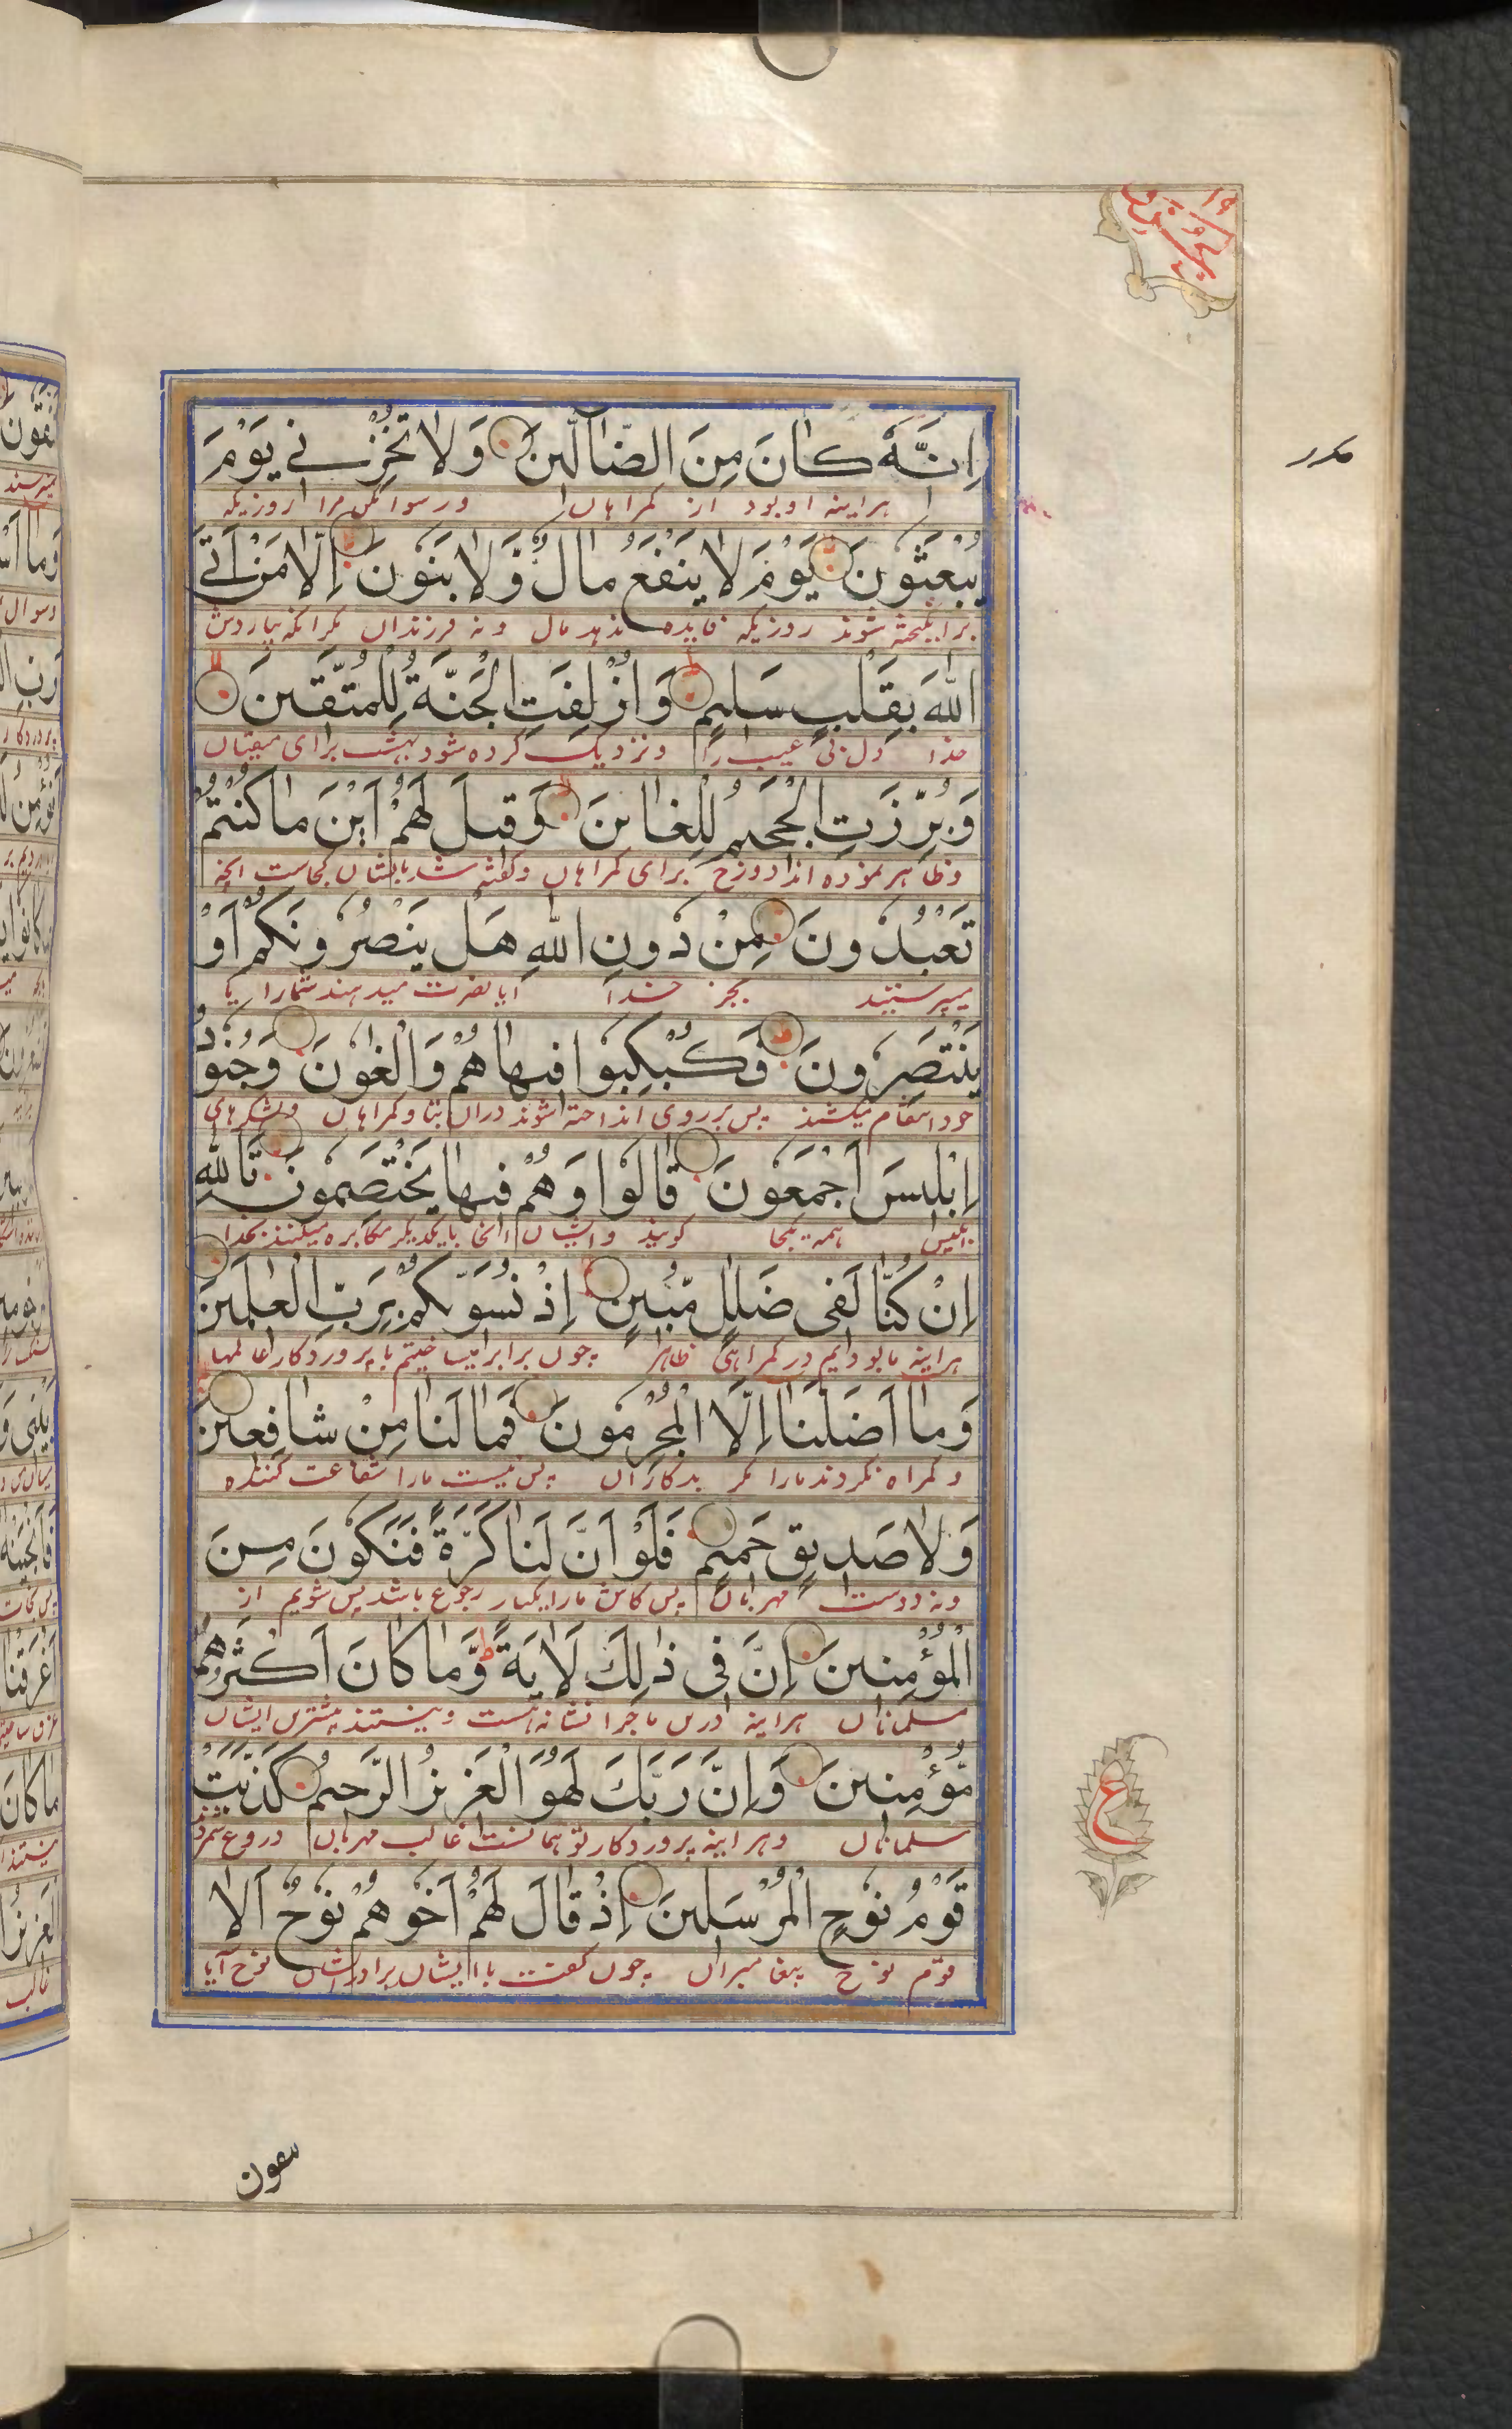 اِنَّهٗ كَانَ مِنَ الضَّآلّٖينَ وَلَا تُخْزِنٖے يَوْمَ
هراینه او بود از گمراهان و رسوا مکن مرا روزیکه
يُبْعَثُونَ يَوْمَ لَا يَنْفَعُ مَالٌ وَّلَا بَنُونَ اِلَّا مَنْ اَتَے
برانگیخته شوند روزیکه فایده ندهد مال و نه فرزندان مگر آنکه بیاردش
اللّٰهَ بِقَلْبٍ سَلٖيمٍ وَاُزْلِفَتِ الْجَنَّةُ لِلْمُتَّقٖينَ
خدا دل بی عیب را و نزدیک کرده شود بهشت برای متقیان
وَبُرِّزَتِ الْجَحٖيمُ لِلْغَاوٖينَ وَقٖيلَ لَهُمْ اَيْنَ مَا كُنْتُمْ
و ظاهر نموده اند دوزخ برای گمراهان و گفته شد بایشان کجاست آنچه
تَعْبُدُونَ مِنْ دُونِ اللّٰهِ هَلْ يَنْصُرُونَكُمْ اَوْ
میپرستیدید بجز خدا آیا نصرت میدهند شمارا یا
يَنْتَصِرُونَ فَكُبْكِبُوا فٖيهَا هُمْ وَالْغَاوٗنَ وَجُنُودُ
خود انتقام میکشند پس بر روی انداخته شوند دران بتان و گمراهان و لشکرهای
اِبْلٖيسَ اَجْمَعُونَ قَالُوا وَهُمْ فٖيهَا يَخْتَصِمُونَ تَاللّٰهِ
ابلیس همه یکجا گویند و ایشان آنجا با یکدیگر مکابره میکنند بخدا
اِنْ كُنَّا لَفٖى ضَلٰلٍ مُّبٖينٍ اِذْ نُسَوّٖيكُمْ بِرَبِّ الْعٰلَمٖينَ
هراینه ما بودیم در گمراهی ظاهر چون برابر میساختیم با پروردگار عالمها
وَمَا اَضَلَّنَا اِلَّا الْمُجْرِمُونَ فَمَا لَنَا مِنْ شَافِعٖينَ
و گمراه نکردند مارا مگر بدکاران پس نیست مارا شفاعت کننده
وَلَا صَدٖيقٍ حَمٖيمٍ فَلَوْ اَنَّ لَنَا كَرَّةً فَنَكُونَ مِنَ
و نه دوست مهربان پس کاش مارا یکبار رجوع باشد پس شویم از
الْمُؤْمِنٖينَ اِنَّ فٖى ذٰلِكَ لَاٰيَةً ط وَّمَا كَانَ اَكْثَرُهُمْ
مسلمانان هراینه درین ماجرا نشانه است و نیستند بیشترین ایشان
مُّؤْمِنٖينَ وَاِنَّ رَبَّكَ لَهُوَ الْعَزٖيزُ الرَّحٖيمُ كَذَّبَتْ
مسلمانان و هراینه پروردگار تو همانست غالب مهربان دروغ شمردند
قَوْمُ نُوحِ الْمُرْسَلٖينَ اِذْ قَالَ لَهُمْ اَخُوهُمْ نُوحٌ اَلَا
قوم نوح پیغامبران چون گفت با ایشان برادر ایشان نوح آیا
ع